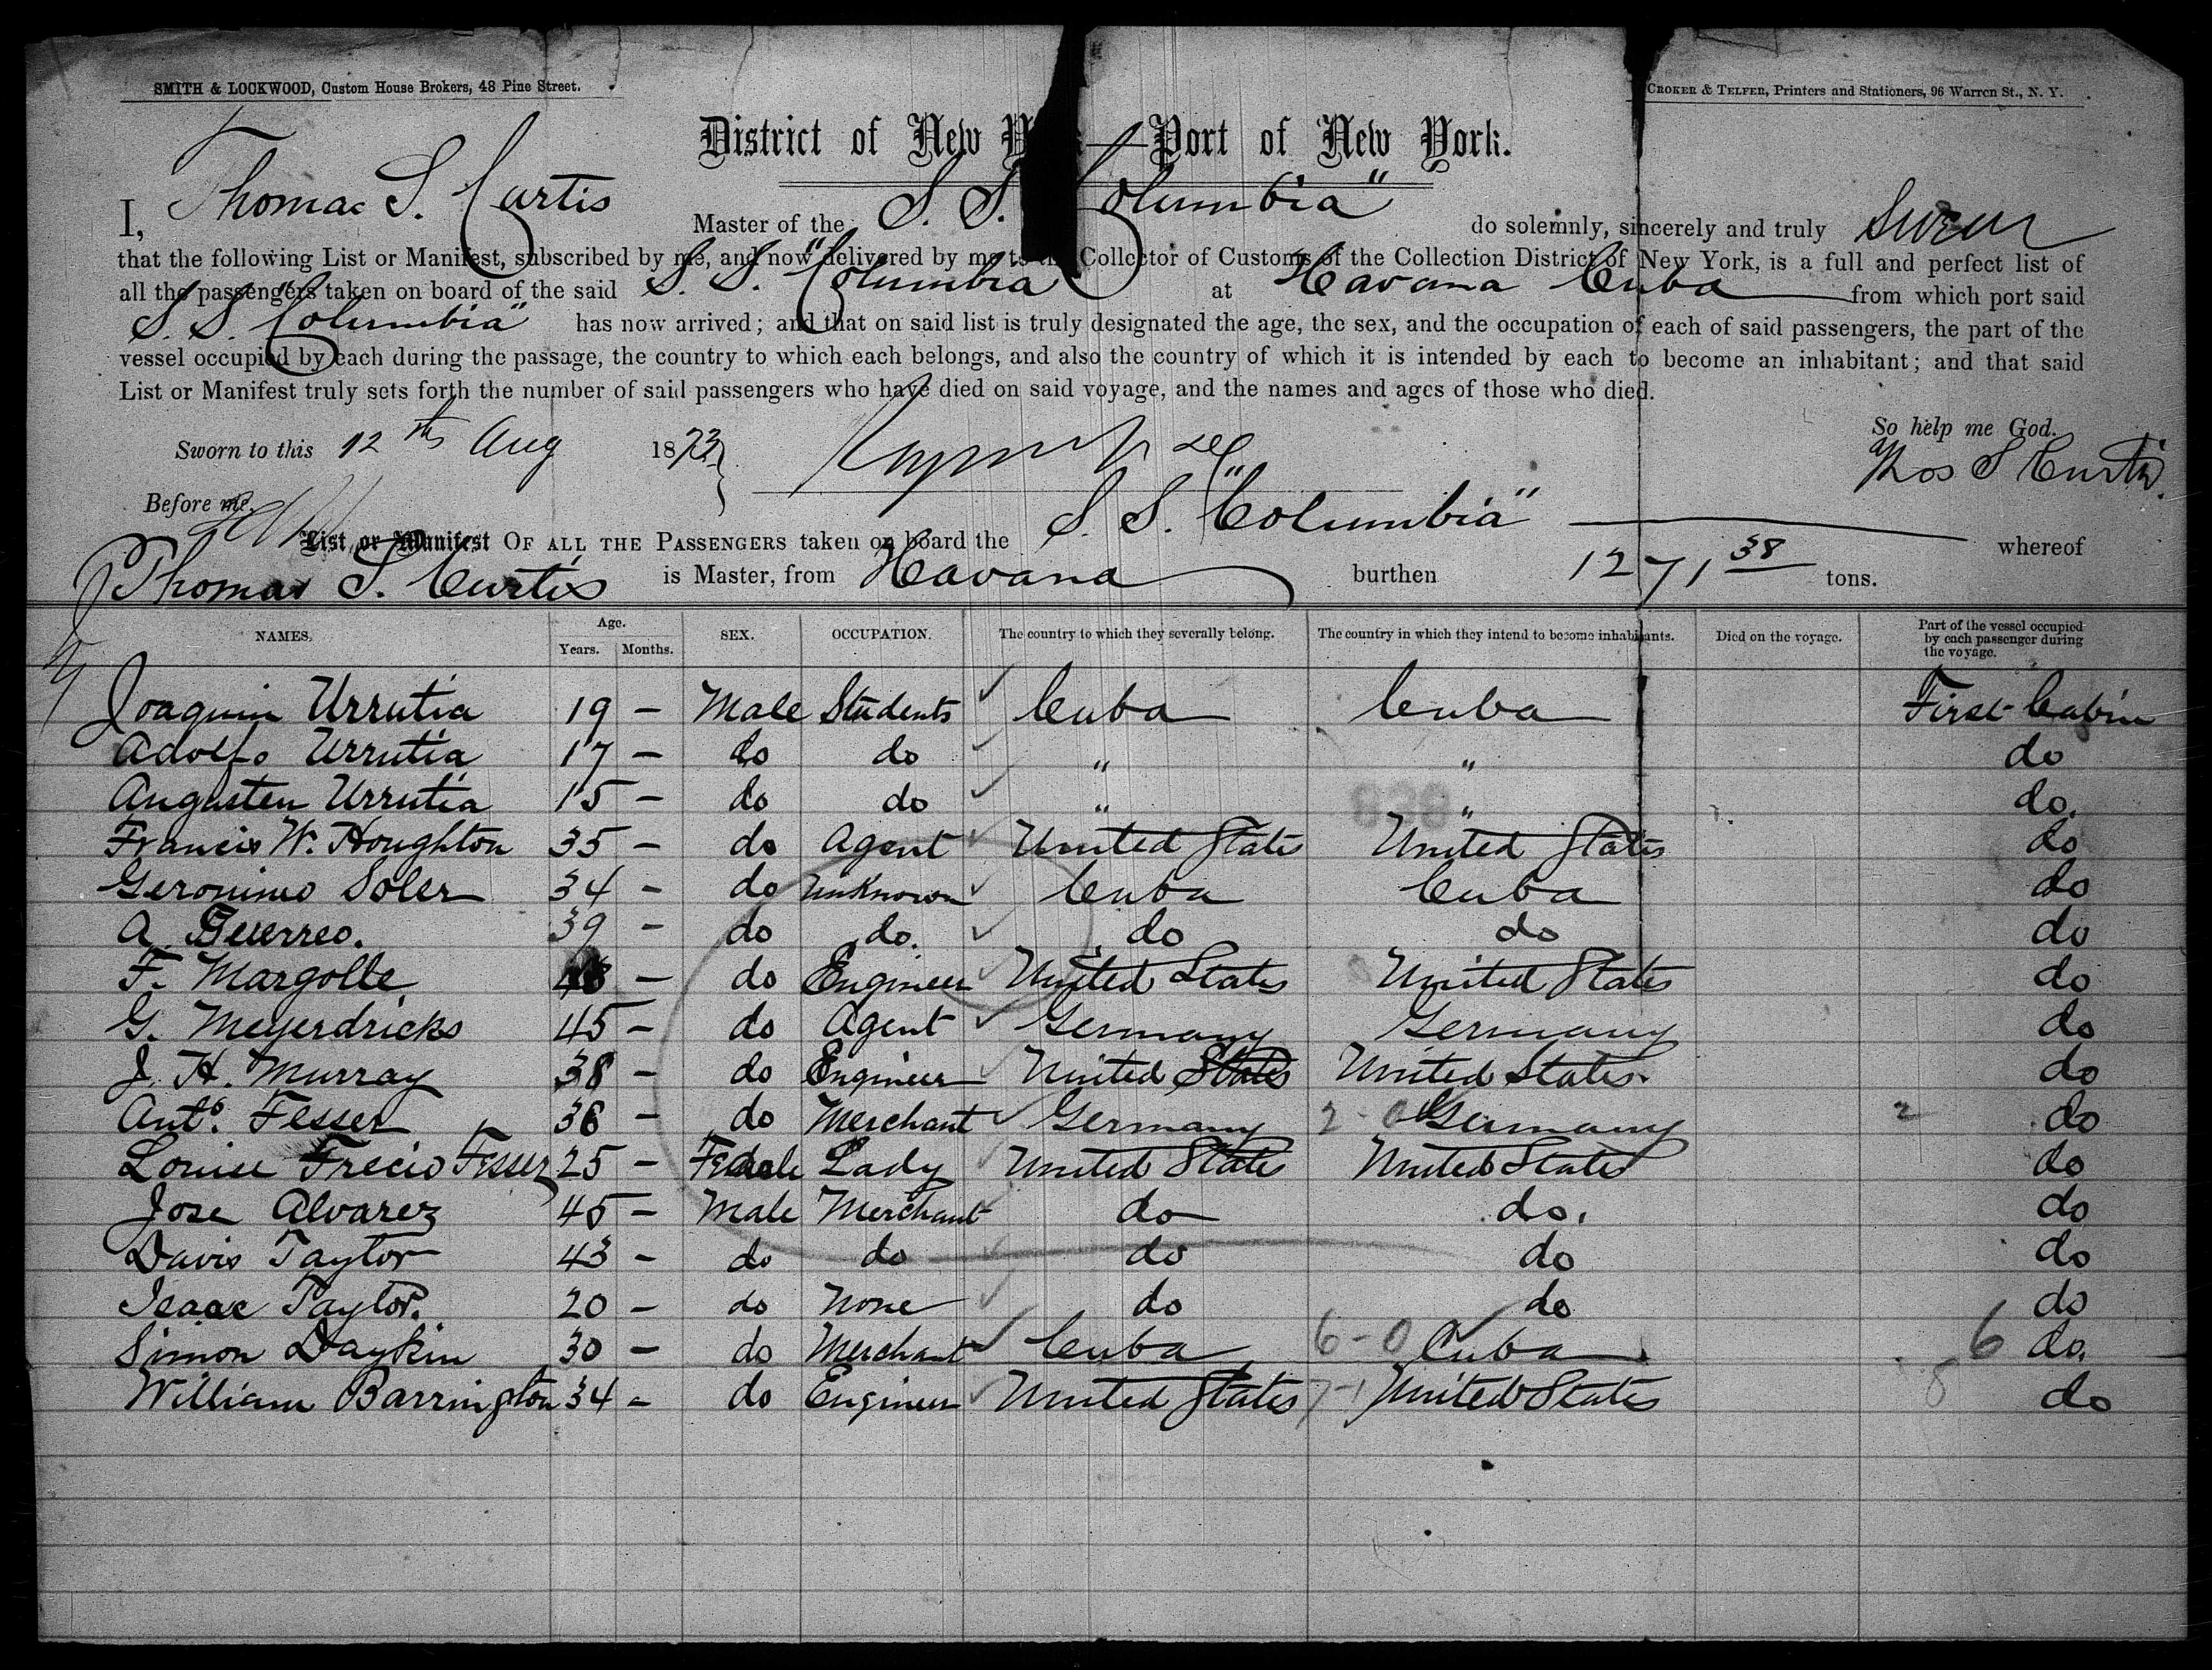 SMITH & LOCKWOOD, Custom House Brokers, 48 Pine Street.
CROKER & TELFER, Printers and Stationers, 96 Warren St., N. Y.
District of New Y — Port of New York.
I, Thomas S. Curtis Master of the S. S. Columbia" do solemnly, sincerely and truly swear
that the following List or Manifest, subscribed by me, and now delivered by me to the Collector of Customs of the Collection District of New York, is a full and perfect list of
all the passengers taken on board of the said S. S. "Columbia at Havana Cuba from which port said
S. S. "Columbia" has now arrived; and that on said list is truly designated the age, the sex, and the occupation of each of said passengers, the part of the
vessel occupied by each during the passage, the country to which each belongs, and also the country of which it is intended by each to become an inhabitant; and that said
List or Manifest truly sets forth the number of said passengers who have died on said voyage, and the names and ages of those who died.
So help me God.
Sworn to this 12th Aug 1873
Thos S Curtis
Before me.
List or Manifest OF ALL THE PASSENGERS taken on board the S. S. "Columbia" whereof
Thomas S. Curtis is Master, from Havana burthen 1271 38 tons.
NAMES. Age. Years. Months. SEX. OCCUPATION. The country to which they severally belong. The country in which they intend to become inhabitants. Died on the voyage. Part of the vessel occupied by each passenger during the voyage.
Joaquin Urrutia 19 - Male Students Cuba Cuba First Cabin
Adolfo Urrutia 17 - do do " " do
Augusten Urrutia 15 - do do " " do.
Francis W. Houghton 35 - do Agent United States United States do
Geronimo Soler 34 - do Unknown Cuba Cuba do
A. Guerreo. 39 - do do. do do do
F. Margolle - do Engineer United States United States do
G. Meyerdricks 45 - do Agent Germany Germany do
J. H. Murray 38 - do Engineer United States United States. do
Anto. Fesser 36 - do Merchant Germany 2-0 Germany 2 do
Louise Frecio Fesser 25 - Female Lady United States United States do
Jose Alvarez 45 - Male Merchant do do. do
Davis Taylor 43 - do do do do do
Isaac Taylor. 20 - do None do do do
Simon Daykin 30 - do Merchant Cuba 6-0 Cuba 6 do.
William Barrington 34 - do Engineer United States 7-1 United States 8 do